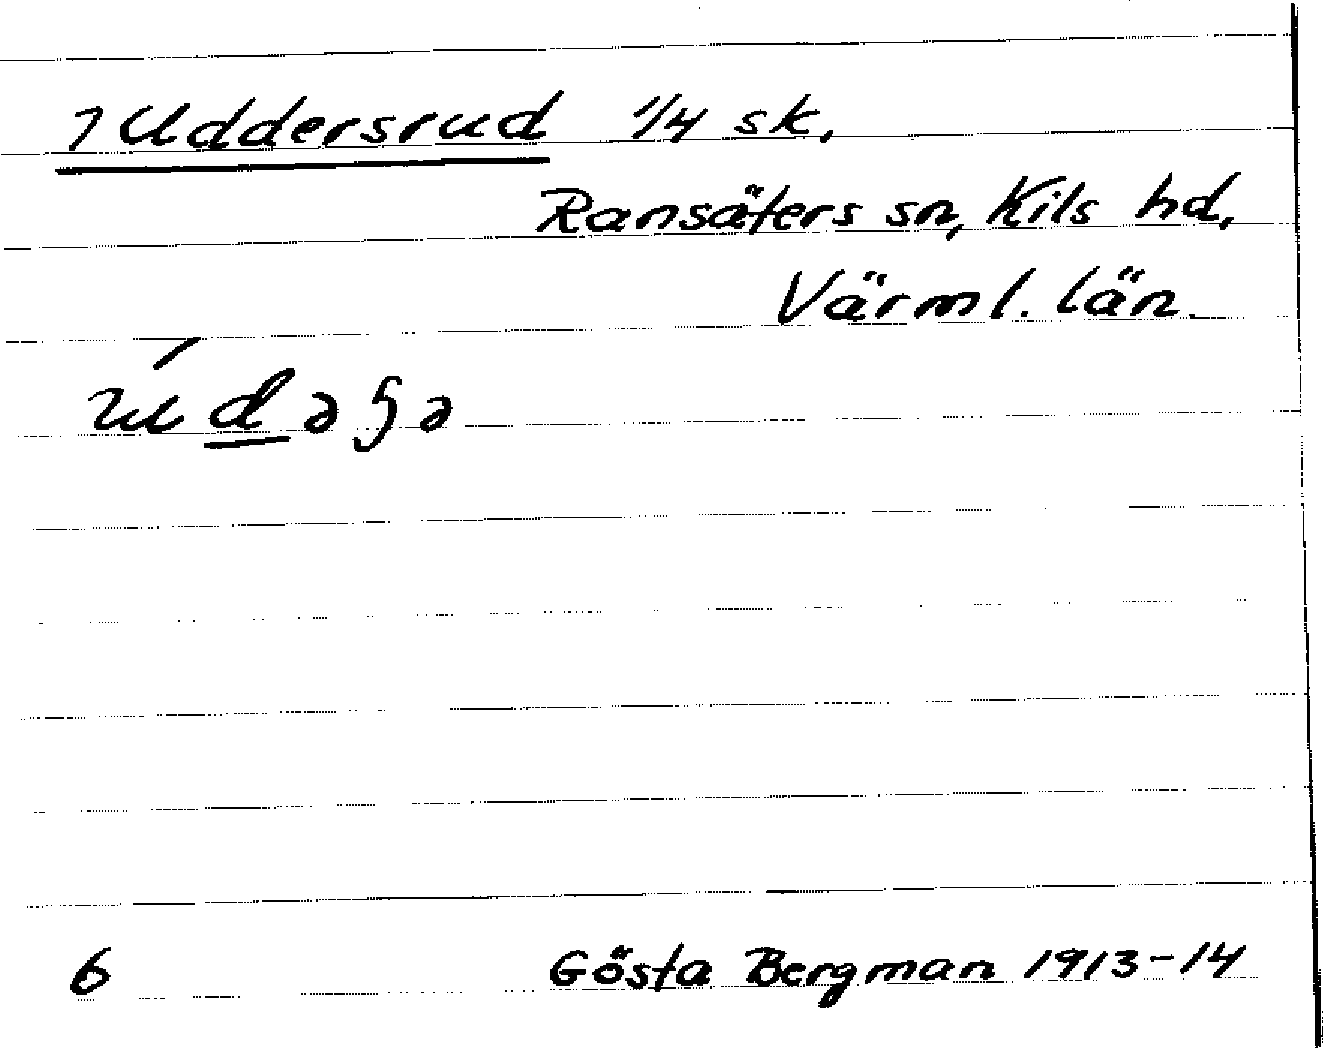 1 Uddersrud 1/4 sk.
Ransäters sn, Kils hd,
Värml. län.
6 Gösta Bergman 1913-14